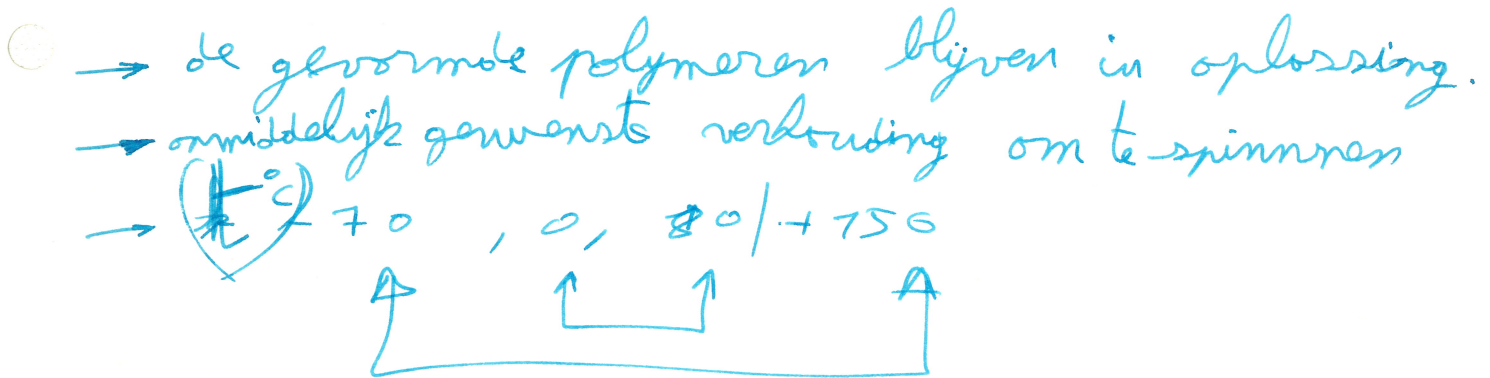 → de gevormde polymeren blijven in oplossing.
→ onmiddelijk gewenste verhouding om te spinnnen
→ (t°C) - 70 , 0, 80/ + 150